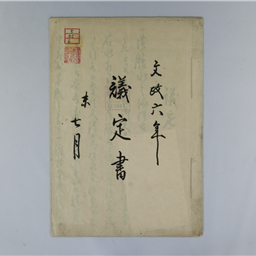 文政六年
議定書
未七月